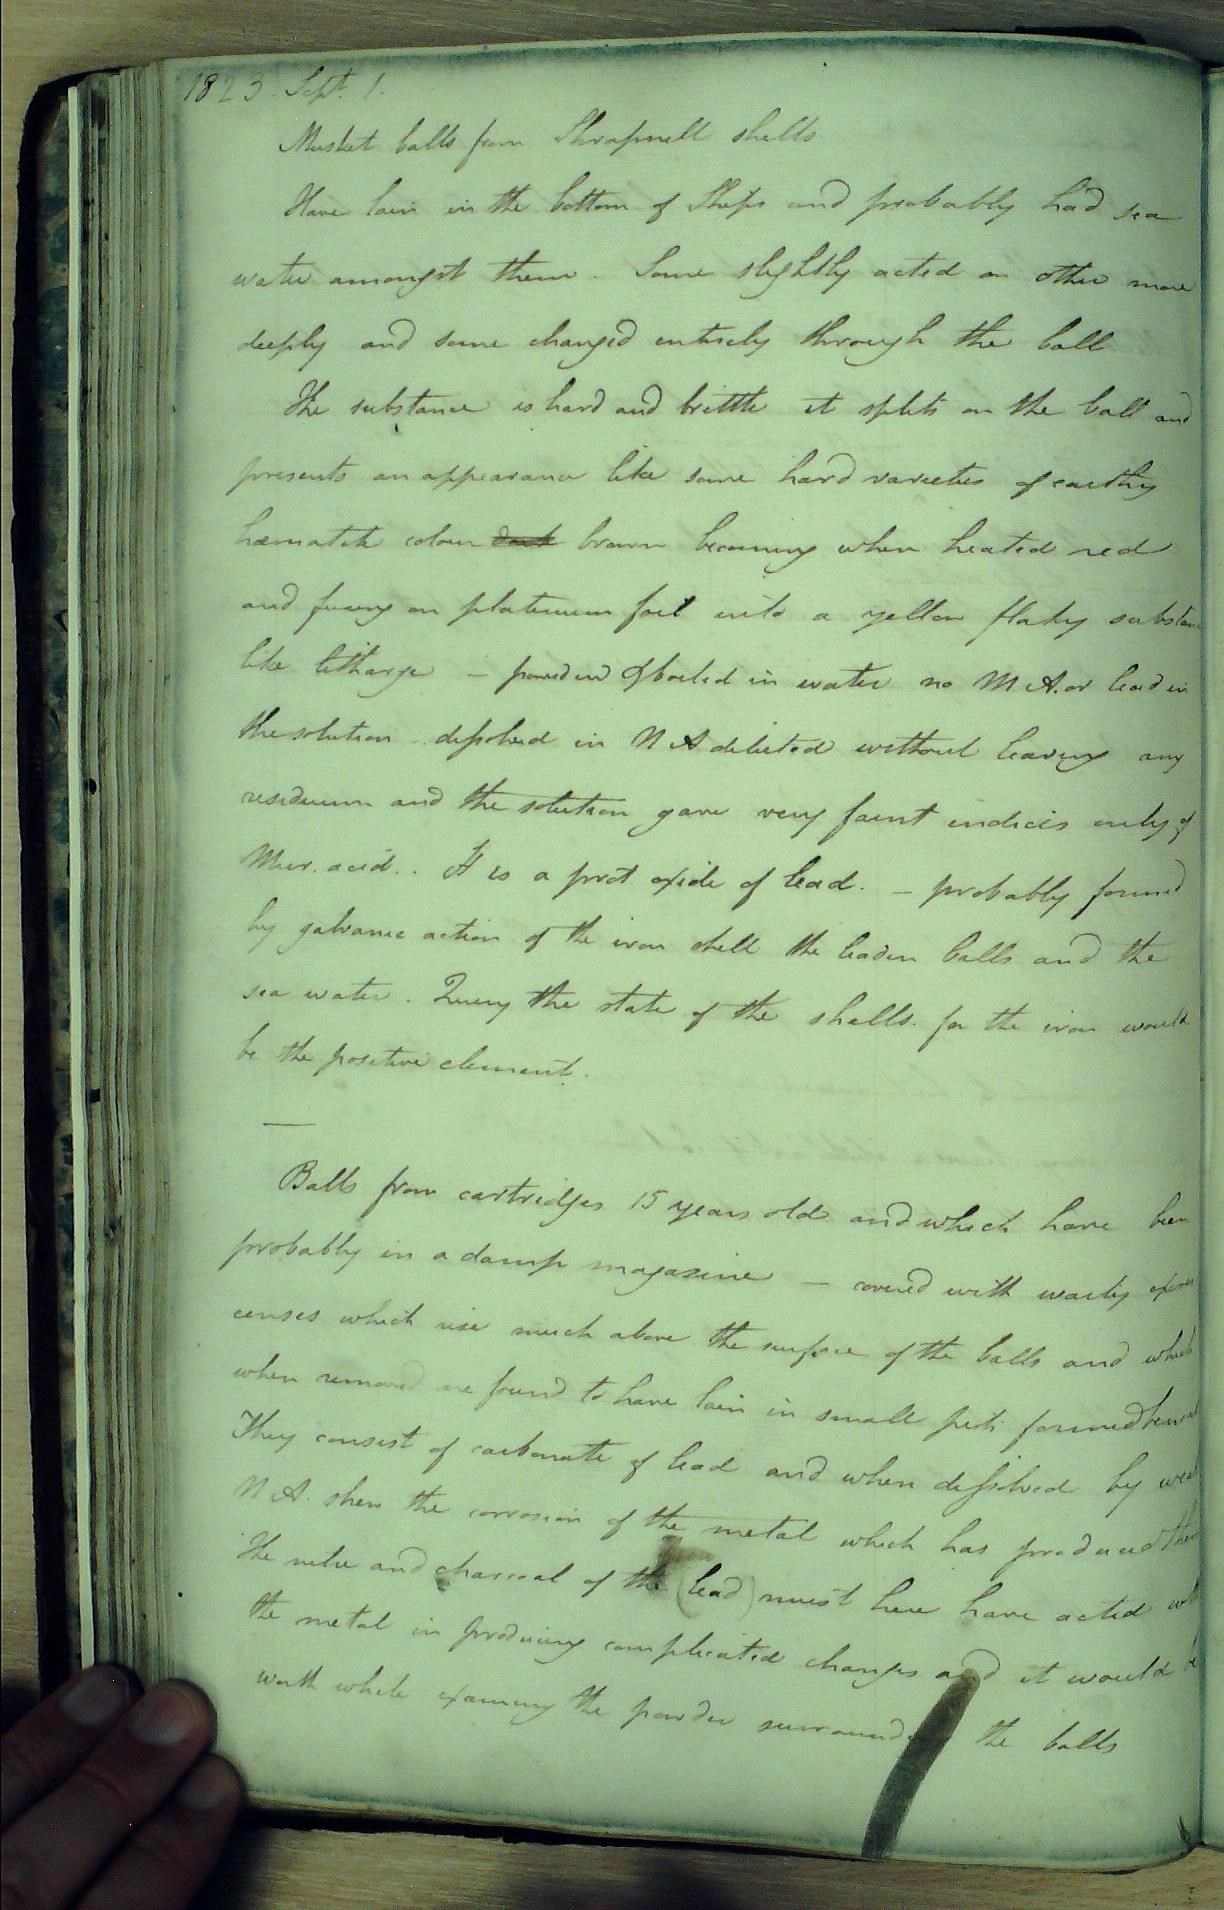 1823. Sept. 1.
Musket balls from Shrapnell shells.
Have lain in the bottom of Ships and probably had sea
water amongst them. Some slightly acted on other more
deeply and some changed entirely through the ball
The substance is hard and brittle it splits on the ball and
presents an appearance like some hard varieties of earthy
hæmatite colour dark brown becoming when heated red
and fusing on platinum foil into a yellow flaky substance
like litharge – powdered & boiled in water no M A. or lead in
the solution .. dissolved in N A diluted without leaving any
residuum and the solution gave very faint indicis only of
Mur. acid.. It is a prot oxide of lead. – probably formed
by galvanic action of the iron shell the leaden balls and the
sea water. Query the state of the shells. for the iron would
be the positive element.
—
Balls from cartridges 15 years old and which have been
probably in a damp magazine – covered with warty excres
cences which rise much above the surface of the balls and which
when removed are found to have lain in small pits formed beneath
They consist of carbonate of lead and when dissolved by weak
N A. shew the corrosion of the metal which has produced them
The nitre and charcoal of the (lead) must here have acted with
the metal in producing complicated changes and it would be
worth while examing the powder surrounding the balls